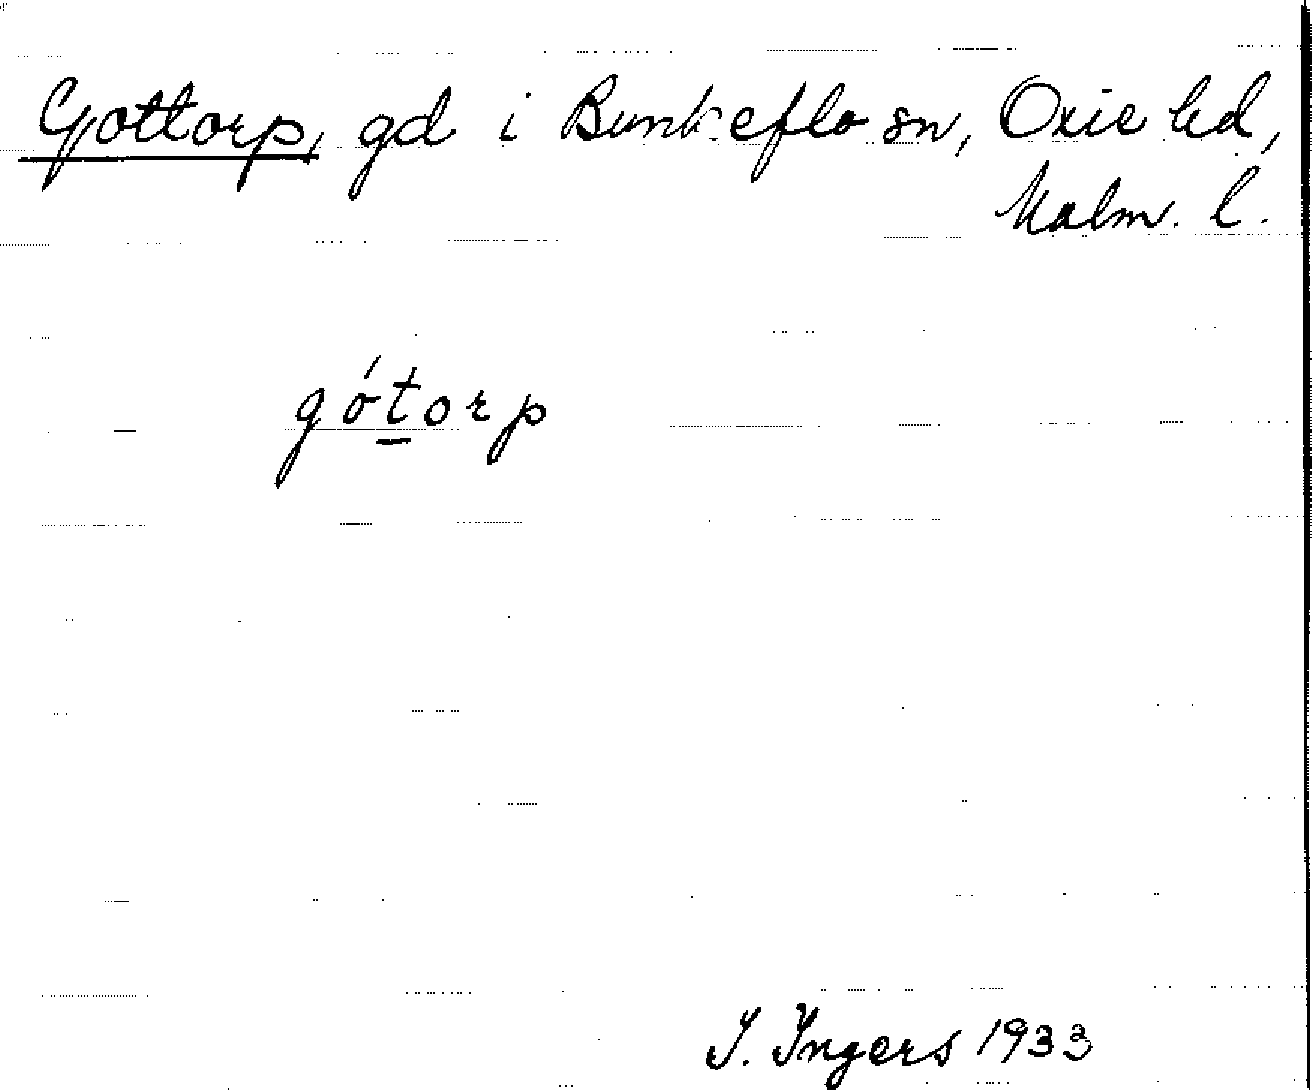 Gottorp, gd i Bunkeflo sn, Oxie hd,
Malm. l.
gótorp
I. Ingers 1933